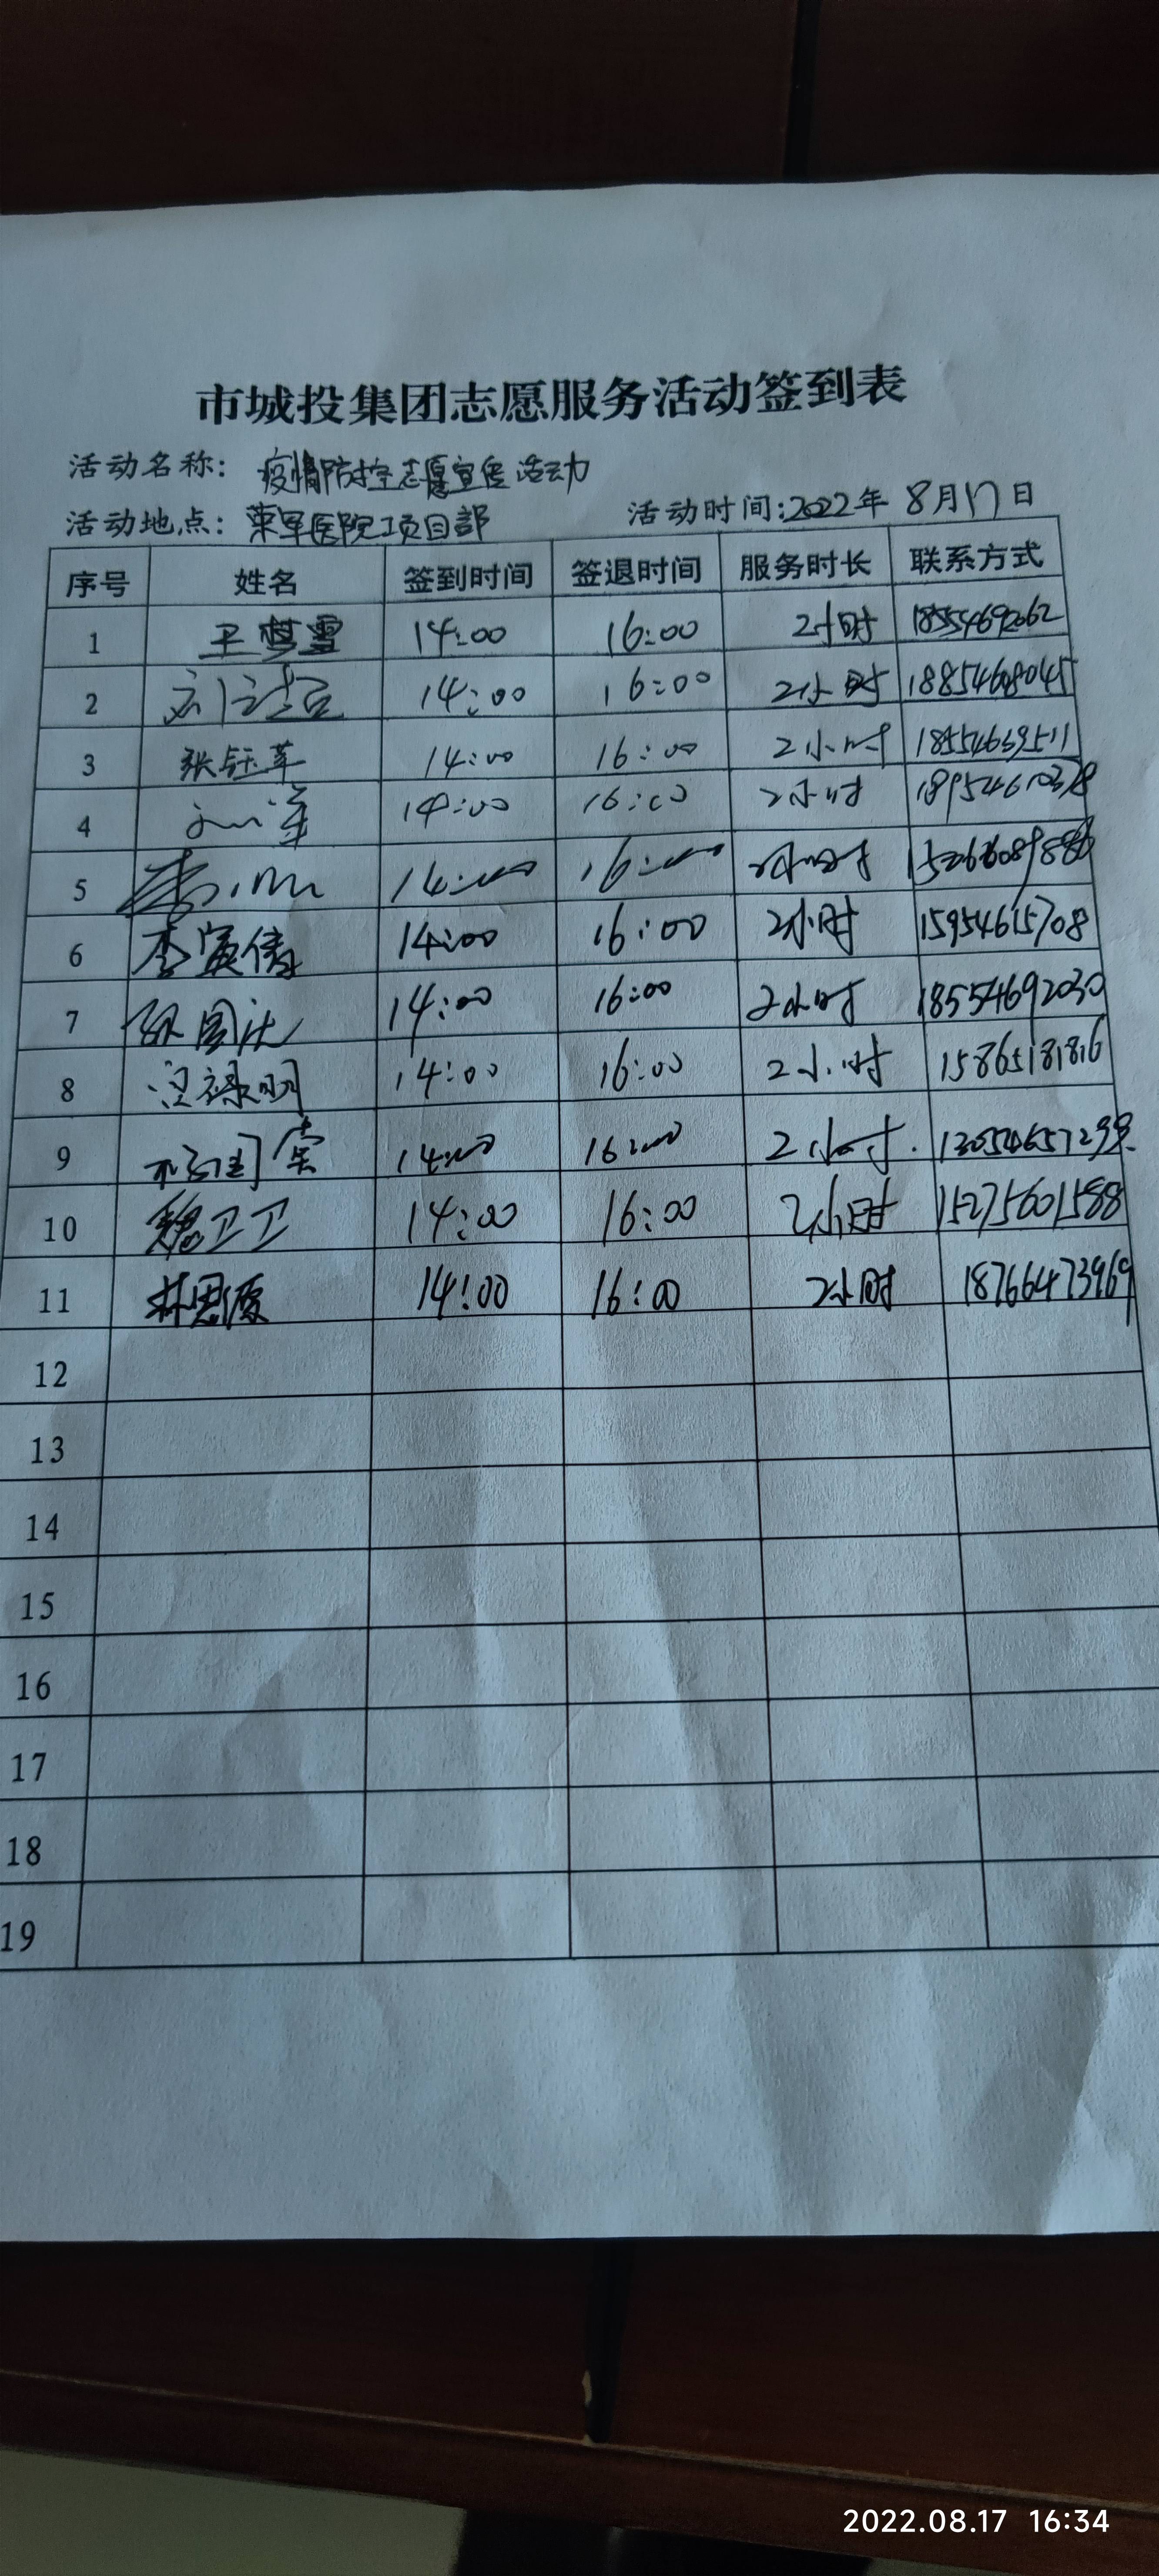 市城投集团志愿服务活动签到表
活动名称: 疫情防控志愿宣传活动
活动地点: 荣军医院项目部 活动时间:2022年 8月17日
序号 姓名 签到时间 签退时间 服务时长 联系方式
1 王梦雪 14:00 16:00 2小时 18554692062
2 14:00 16:00 2小时 18854608045
3 张钰苹 14:00 16:00 2小时 18554639511
4 14:00 16:00 2小时
5 李 14:00 16:00 2小时
6 李寅倩 14:00 16:00 2小时 15954615708
7 国庆 14:00 16:00 2小时 18554692030
8 禄明 14:00 16:00 2小时 15865181816
9 14:00 16:00 2小时
10 魏卫卫 14:00 16:00 2小时 15275601588
11 林思源 14:00 16:00 2小时 18766473969
12
13
14
15
16
17
18
19
2022.08.17 16:34